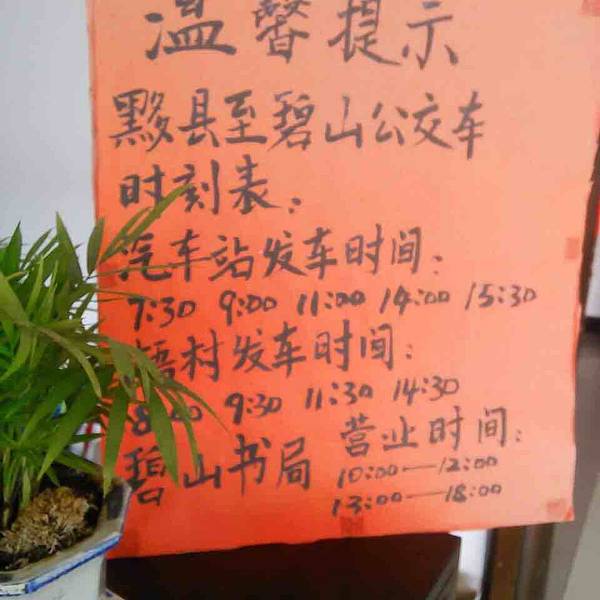 温馨提示
黟县至碧山公交车
时刻表:
汽车站发车时间:
7:30 9:00 11:00 14:00 15:30
村发车时间:
9:30 11:30 14:30
碧山书局
营业时间:
10:00—12:00
13:00—18:00